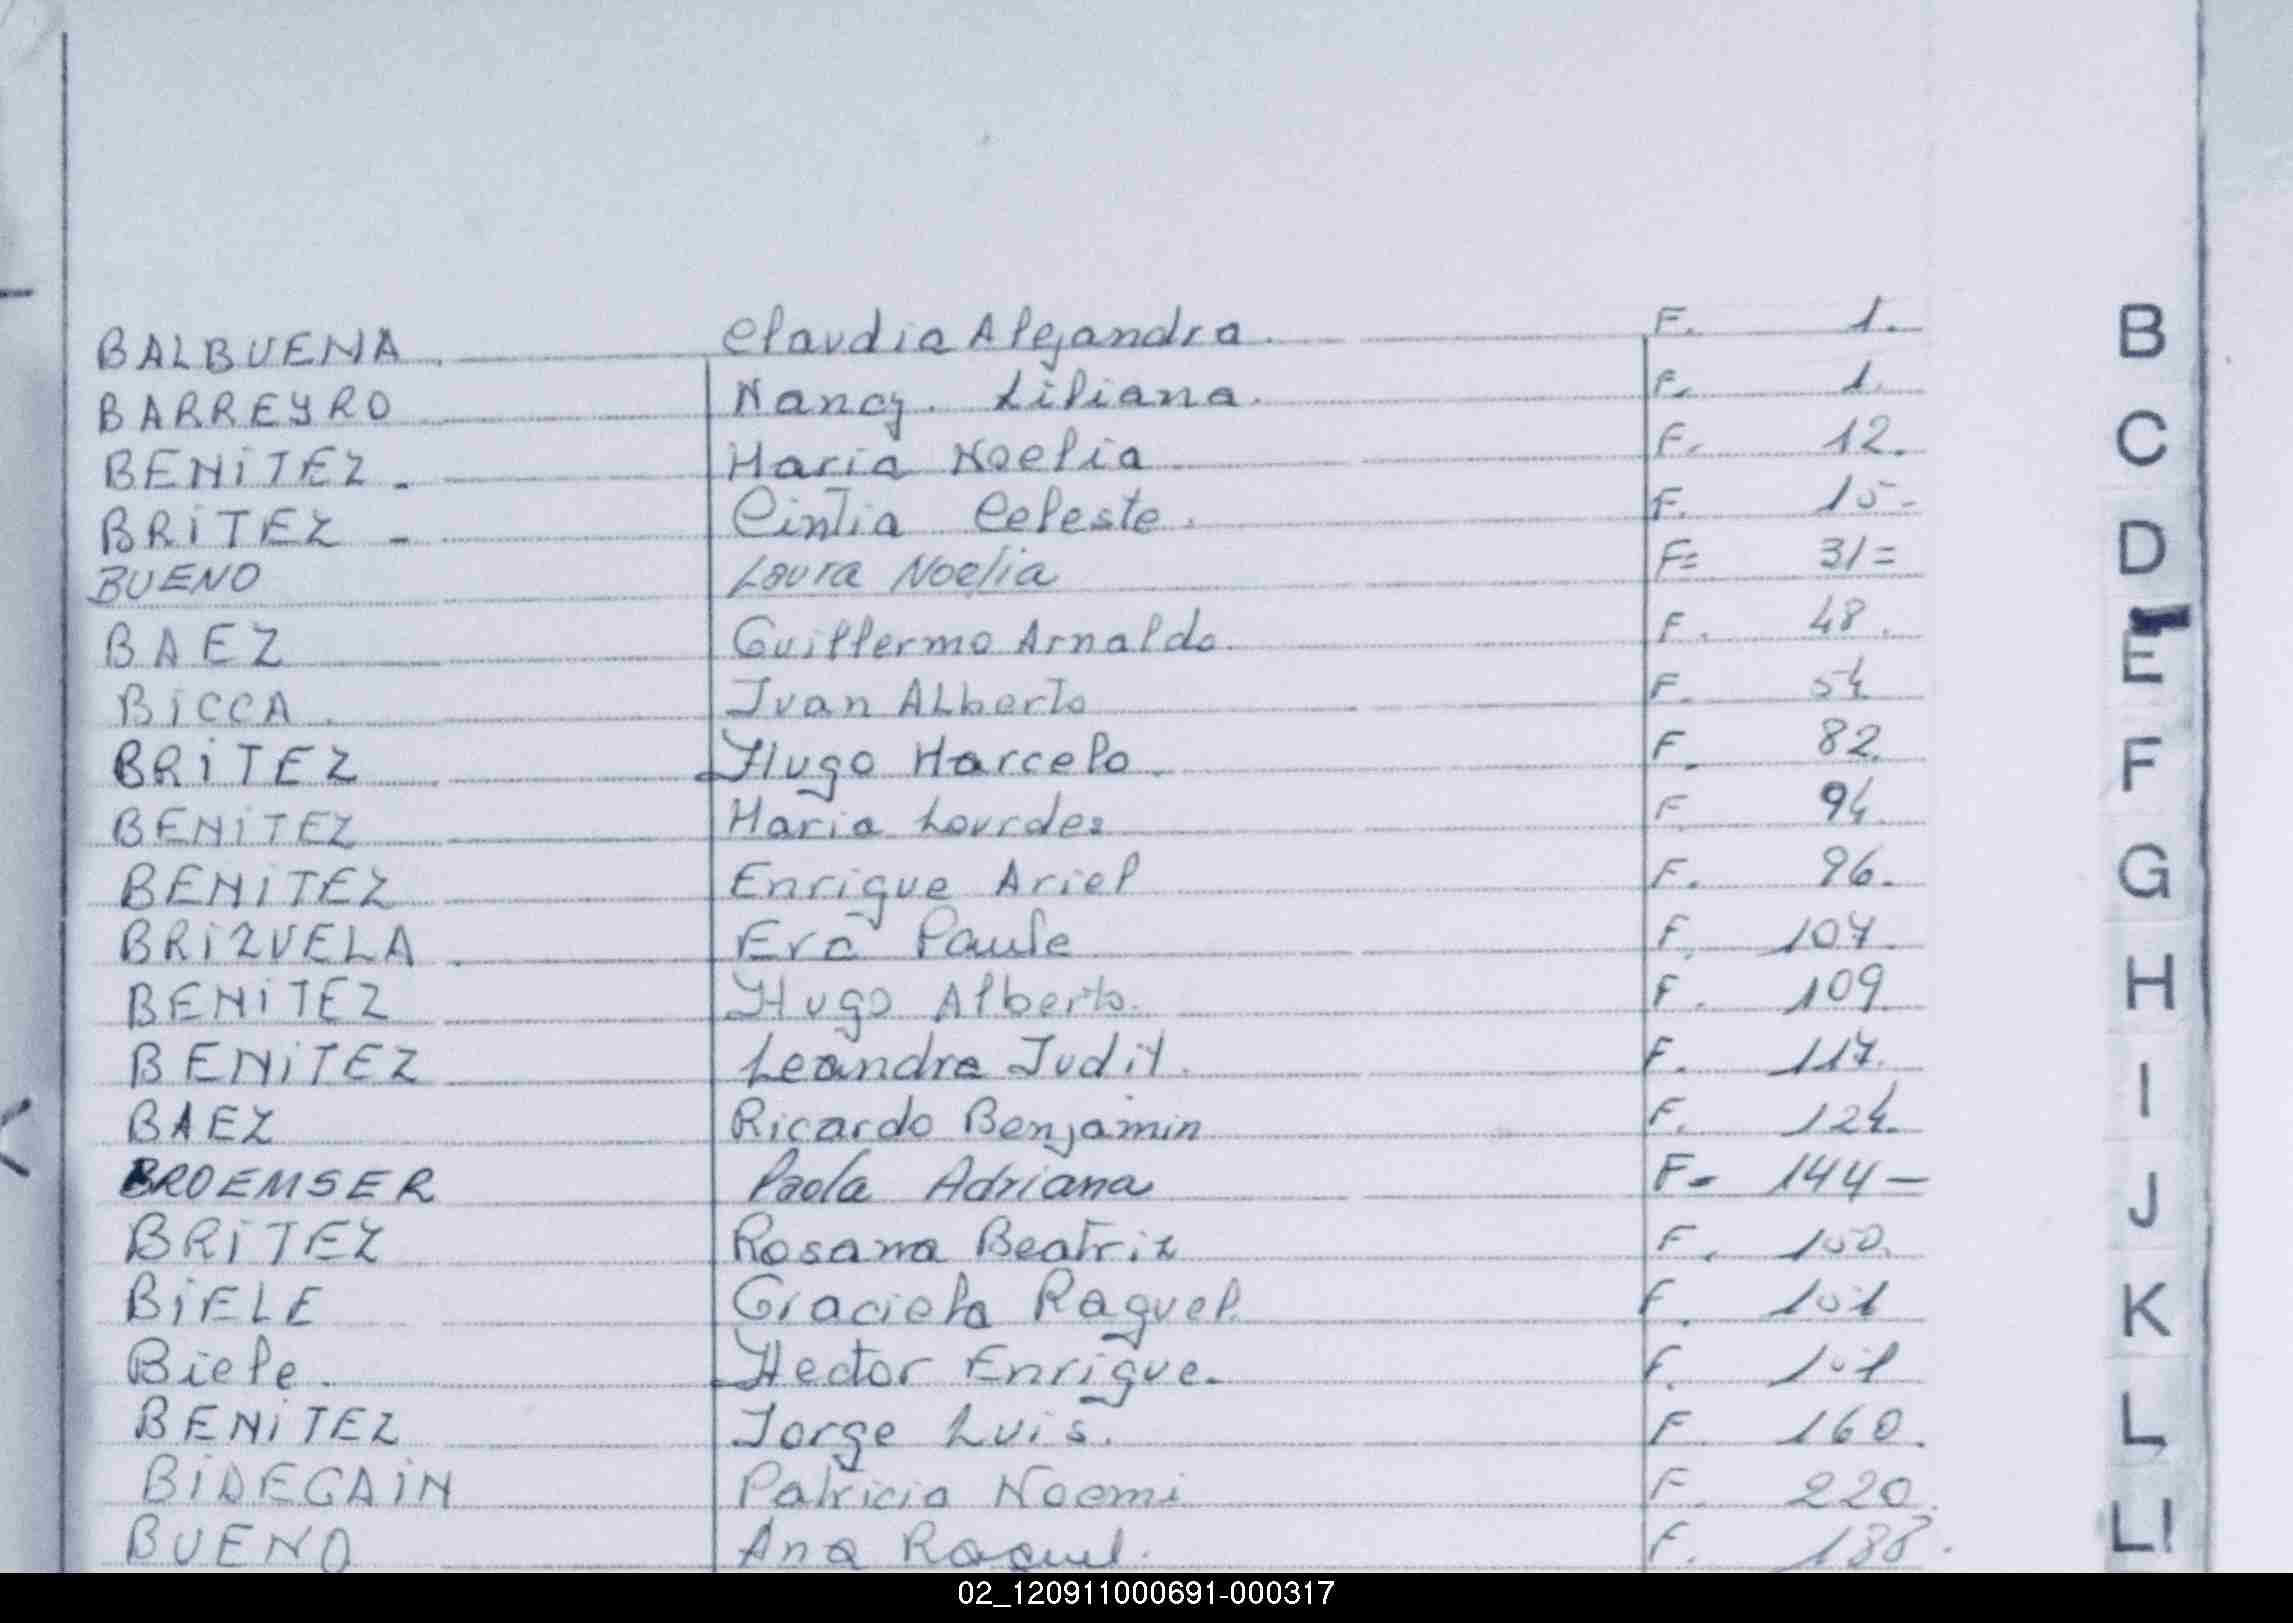 BALBUENA. Claudia Alejandra. F. 1.
BARREYRO Nancy. Liliana. F. 1.
BENiTEZ. Maria Noelia F. 12.
BRiTEZ - Cintia Celeste. F. 15-
BUENO Laura Noelia F= 31=
BAEZ Guillermo Arnaldo. F. 48.
BiCCA. Ivan ALberto F. 54
BRiTEZ Hugo Marcelo. F. 82.
BENiTEZ Maria Lourdes F 94.
BENiTEZ Enrique Ariel F. 96.
BRiZUELA. F. 107.
BENiTEZ Hugo Alberto. F. 109
BENiTEZ Leandra Judit. F. 117.
BAEZ Ricardo Benjamin F. 124.
BROEMSER Paola Adriana F- 144-
BRiTEZ Rosana Beatriz F.
BiELE Graciela Raquel. F.
Biele. Hector Enrique. F.
BENiTEZ Jorge Luis. F. 160.
BiDEGAiN Patricia Noemi F. 220.
BUENO Ana Raquel. F.
B
C
D
E
F
G
H
I
J
K
L
Ll
02_120911000691-000317